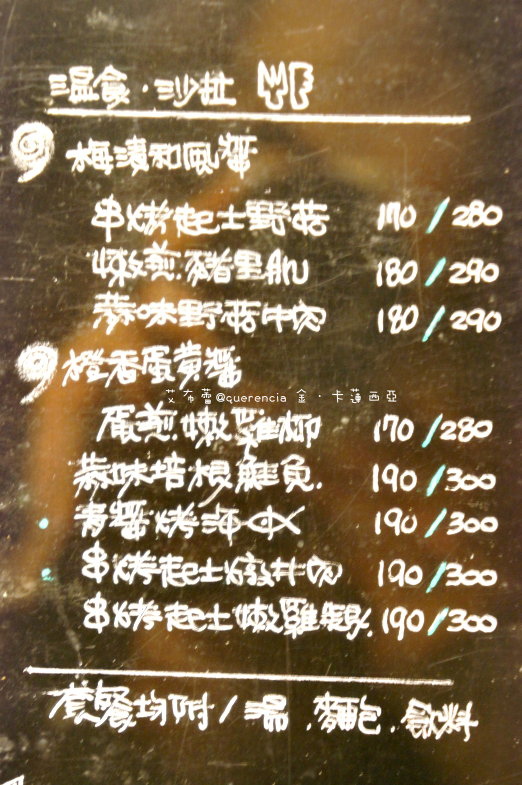 温食·沙拉
梅漬和風醬
串烤起士野菇 170/280
嫩煎豬里肌 180/290
蒜味野菇牛肉 180/290
橙香蛋黃醬
艾布蕾@querencia 金·卡蓮西亞
蛋煎嫩雞柳 170/280
蒜味培根鮭魚 190/300
青醬烤海 190/300
串烤起士燉牛肉 190/300
串烤起士嫩雞腿 190/300
套餐均附/湯.麵包.飲料